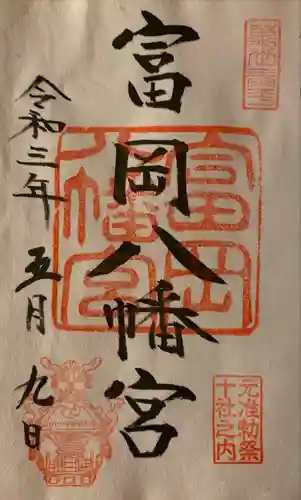 富岡八幡宮
令和三年
五月
九日
富岡
八幡宮
元准勅祭
十社之内